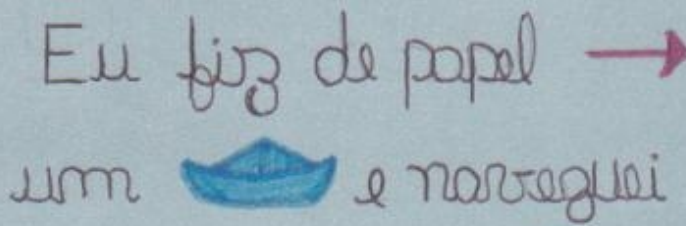 Eu fiz de papel →
um e naveguei